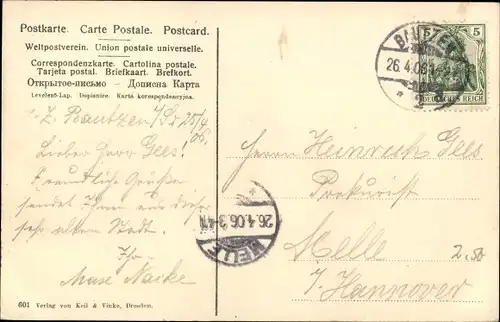 Postkarte. Carte Postale. Postcard.
Weltpostverein. Union postale universelle.
Correspondenzkarte. Cartolina postale.
Tarjeta postal. Briefkaart. Brefkort.
Открытое-письмо — Дописна Карта
Levelező-Lap. Dopisnice. Karta korespondencyjna.
z. Z. Bautzen i/Sa 25/4 06.
Lieber Herr Gees!
Freundliche Grüße
sendet Ihnen aus dieser
sehr alten Stadt.
Ihr
Max Nacke
601 Verlag von Keil & Vinke, Dresden.
BAUTZEN
26.4.06
5 5
DEUTSCHES REICH
Herrn Heinrich Gees
Prokurist
Melle
i/Hannover
2.50
MELLE
26.4.06.3-4N